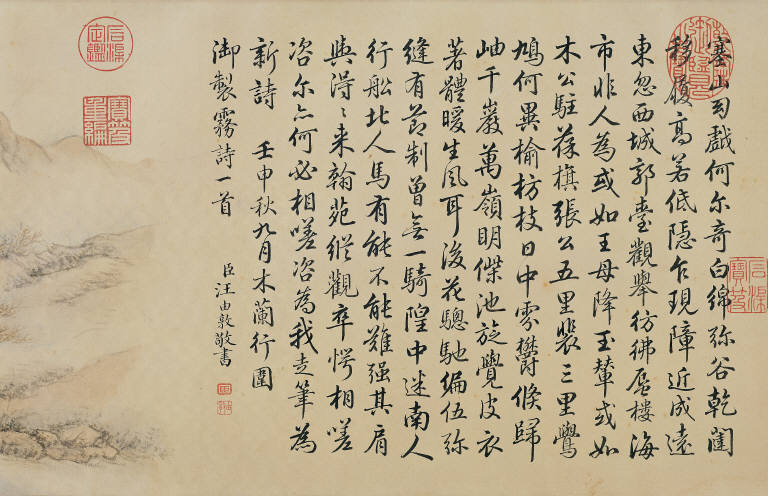 塞山幻戲何尔奇白綿弥谷乾闥
移履高若低隱乍現障近成遠
東忽西城郭臺觀舉彷彿蜃樓海
市非人為或如王母降玉輦或如
木公駐葆旗張公五里裴三里鷽
鳩何異榆枋枝日中雰鬱倏歸
岫千巖萬嶺明傑池旋覺皮衣
著體暖生風耳後花驄馳編伍弥
縫有節制曾無一騎隍中迷南人
行船北人馬有能不能難强其肩
輿得得来翰苑縱觀卒愕相嗟
咨尔亦何必相嗟咨為我走筆為
新詩 壬申秋九月木蘭行圍
御製霧詩一首
臣汪由敦敬書
石渠定鑑
寶笈重編
石渠寶笈